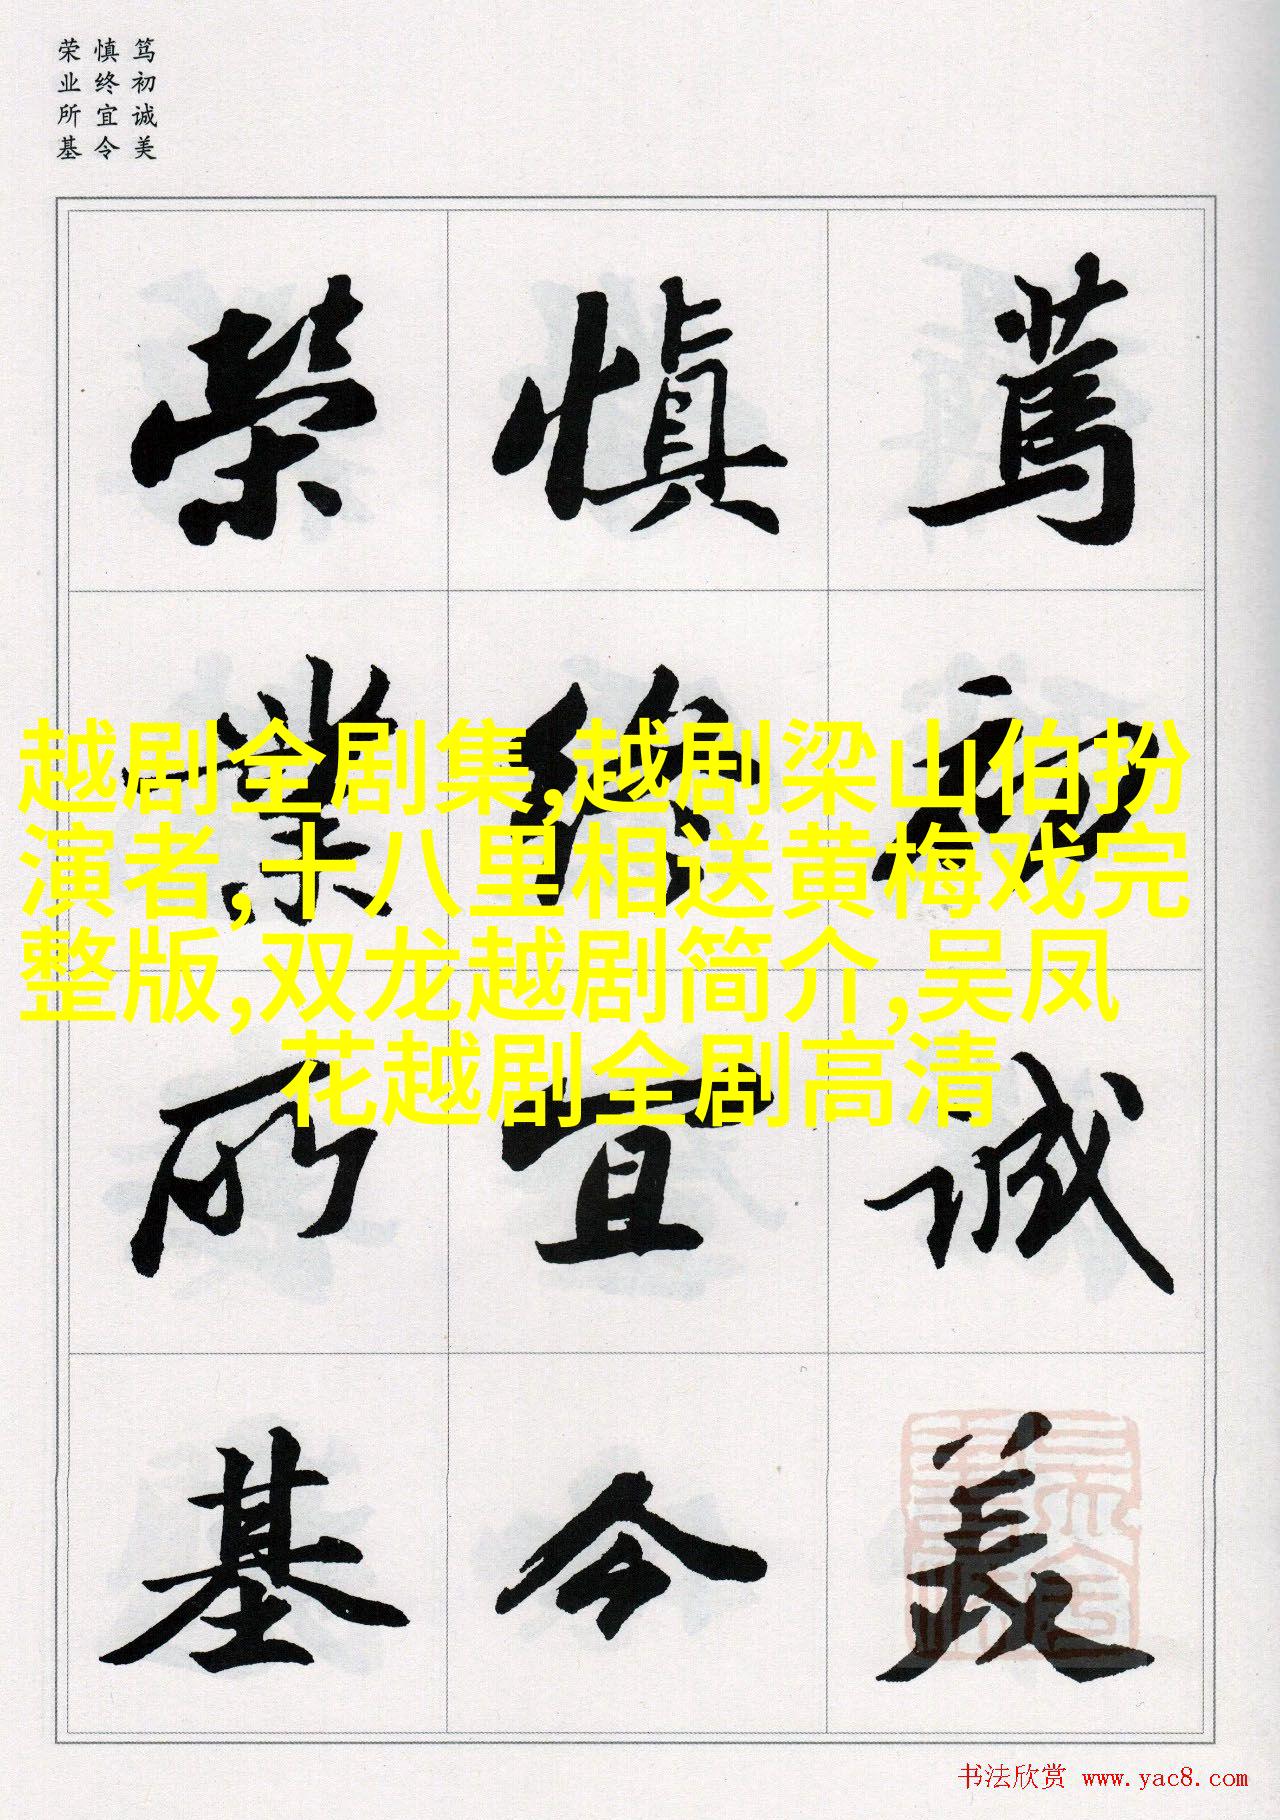 笃初诚美
慎终宜令
荣业所基
笃初诚美
慎终宜令
荣业所基
越剧全剧集,越剧梁山伯扮
演者,十八里相送黄梅戏完
整版,双龙越剧简介,吴凤
花越剧全剧高清
书法欣赏 www.yac8.com